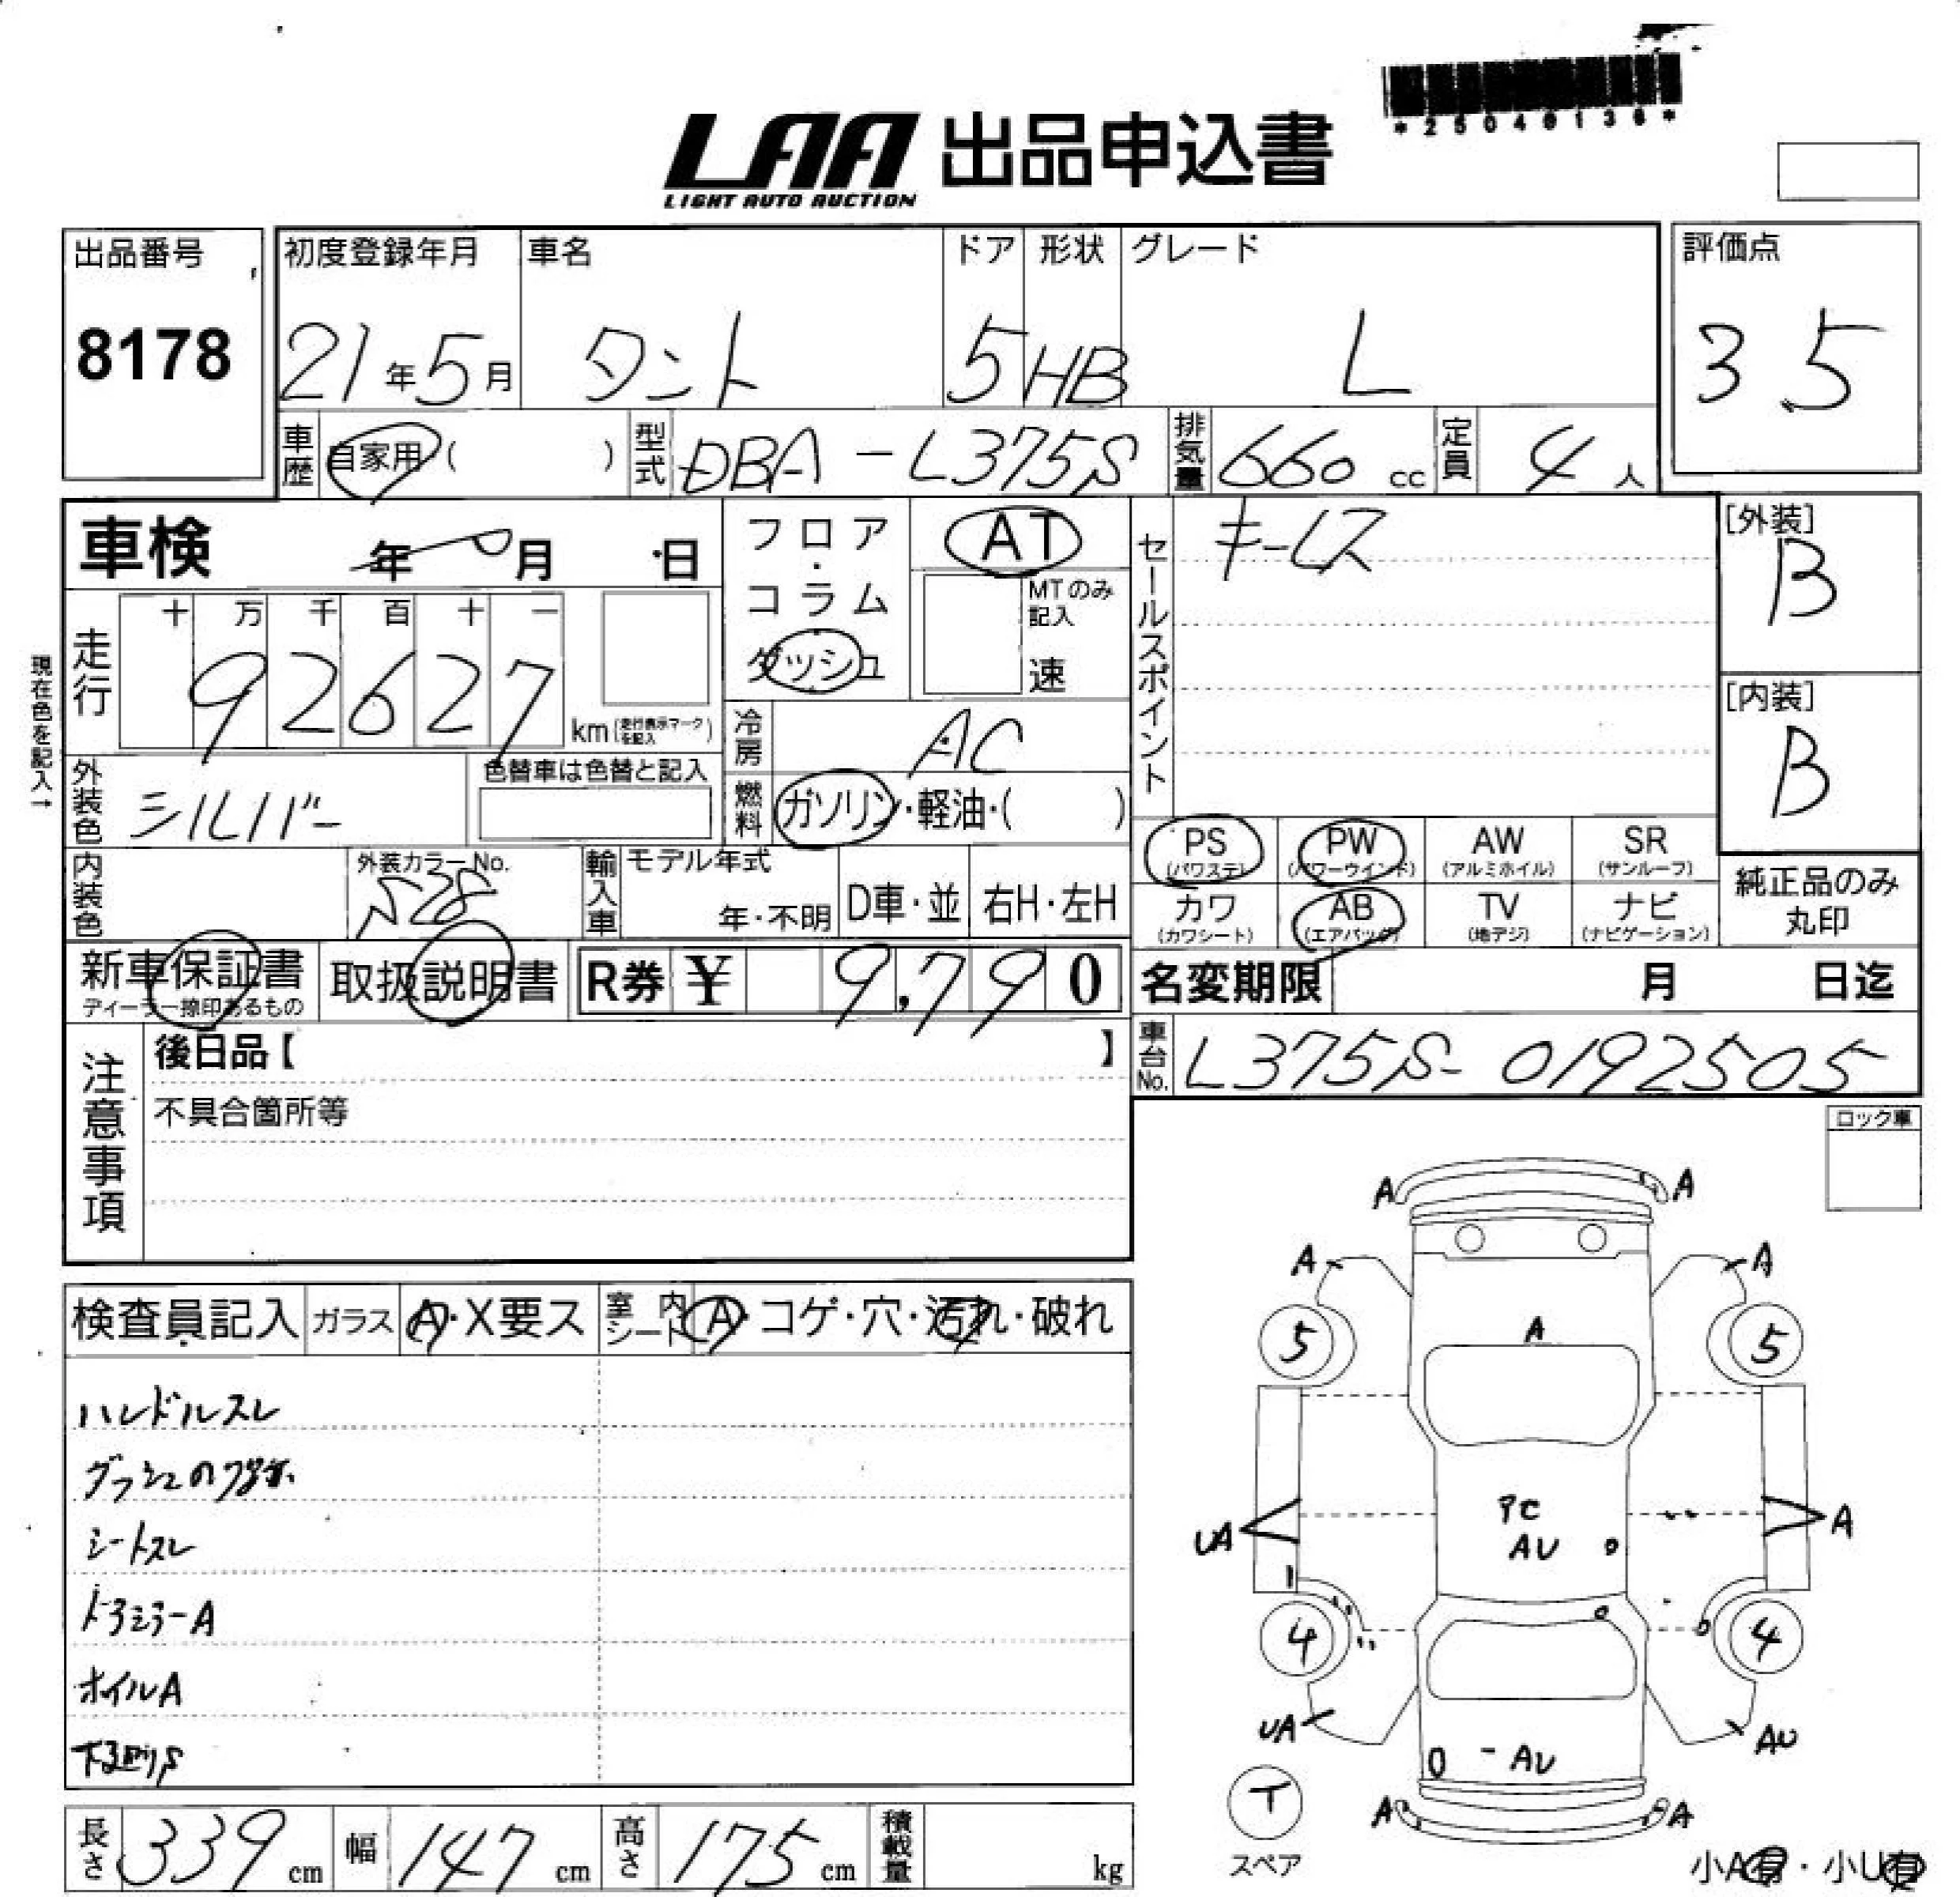 *25040136*
LAA 出品申込書
LIGHT AUTO AUCTION
出品番号
8178
初度登録年月
21年5月
車名
タント
ドア
5
形状
HB
グレード
L
評価点
3.5
車歴
自家用( )
型式
DBA-L375S
排気量
660 cc
定員
4 人
車検 年 月 日
フロア・コラム
ダッシュ
AT
MTのみ
記入
速
セールスポイント
キーレス
[外装]
B
[内装]
B
現在色を記入→
走行
十 万 千 百 十 一
9 2 6 2 7
km(走行表示マークを記入)
冷房
AC
外装色
シルバー
色替車は色替と記入
燃料
ガソリン・軽油・( )
内装色
外装カラーNo.
S28
輸入車
モデル年式
年・不明
D車・並
右H・左H
PS
(パワステ)
PW
(パワーウインド)
AW
(アルミホイル)
SR
(サンルーフ)
カワ
(カワシート)
AB
(エアバッグ)
TV
(地デジ)
ナビ
(ナビゲーション)
純正品のみ
丸印
新車保証書
ディーラー捺印あるもの
取扱説明書
R券 ¥ 9,790
名変期限 月 日迄
車台No.
L375S-0192505
注意事項
後日品【 】
不具合箇所等
ロック車
検査員記入
ガラス
A・X要ス
室内シート
A・コゲ・穴・汚れ・破れ
ハンドルスレ
シートスレ
ドアミラーA
ホイルA
下廻りS
A A
A A
5 5
A
PC
AU
UA A
4 4
UA AU
AU
T
スペア
A A
小A有・小U有
長さ 339 cm
幅 147 cm
高さ 175 cm
積載量 kg